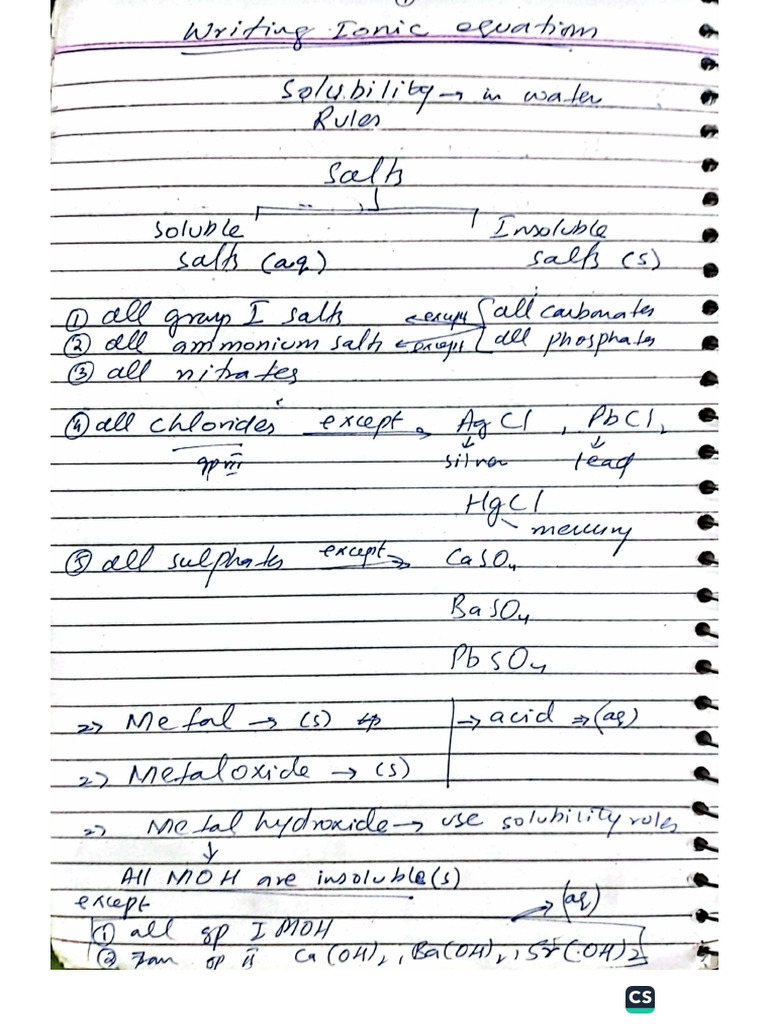 Writing Ionic equation
Solubility → in water
Rules
Salts
Soluble Insoluble
salts (aq) salts (s)
① all group I salts ← except all carbonates
② all ammonium salts ← except all phosphates
③ all nitrates
④ all chlorides except → AgCl, PbCl₂
gp VII silver lead
HgCl
mercury
⑤ all sulphates except → CaSO₄
BaSO₄
PbSO₄
Metal → (s) → acid ⇒ (aq)
Metaloxide → (s)
Metal hydroxide → use solubility rules
↓
All MOH are insoluble(s)
except (aq)
① all gp I MOH
② gp II Ca(OH)₂, Ba(OH)₂, Sr(OH)₂
CS